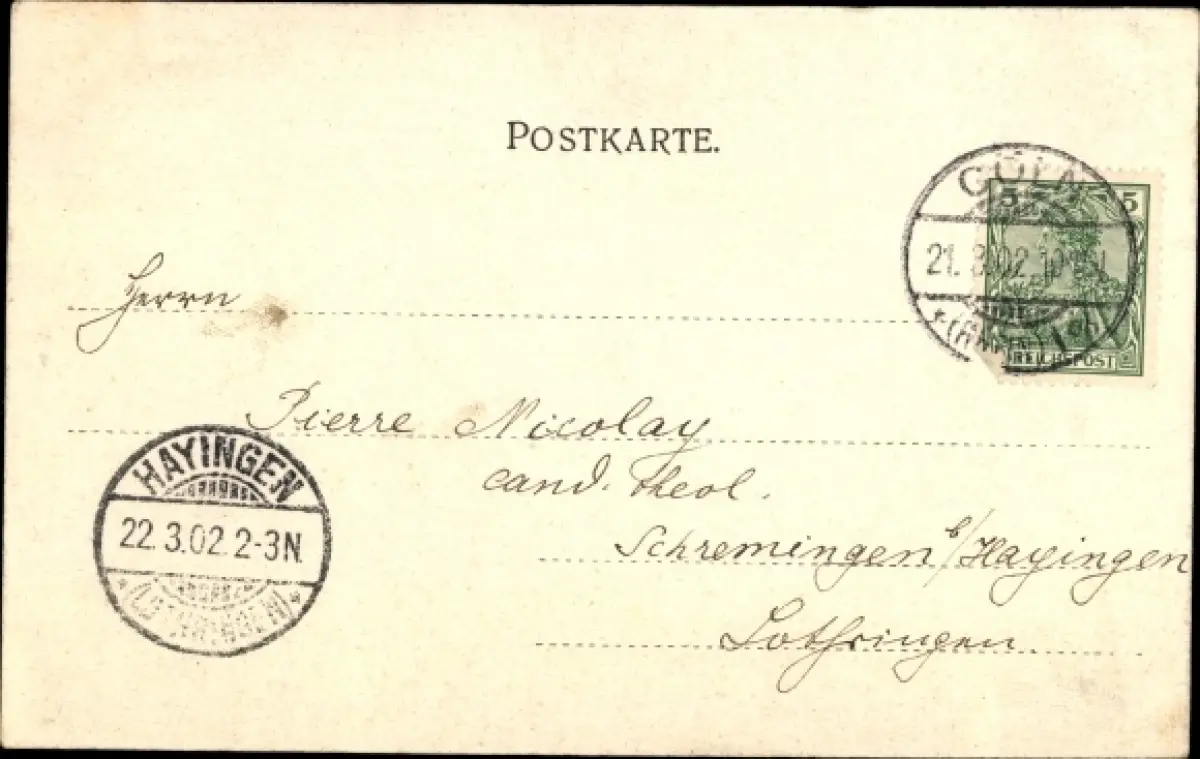 POSTKARTE.
CÖLN
5 5
21. 3.02.
(RHEIN)
REICHSPOST
Herrn
Pierre Nicolay
cand. theol.
Schremingen b/Hayingen
Lothringen.
HAYINGEN
22.3.02.2-3N.
*(LOTHRINGEN)*